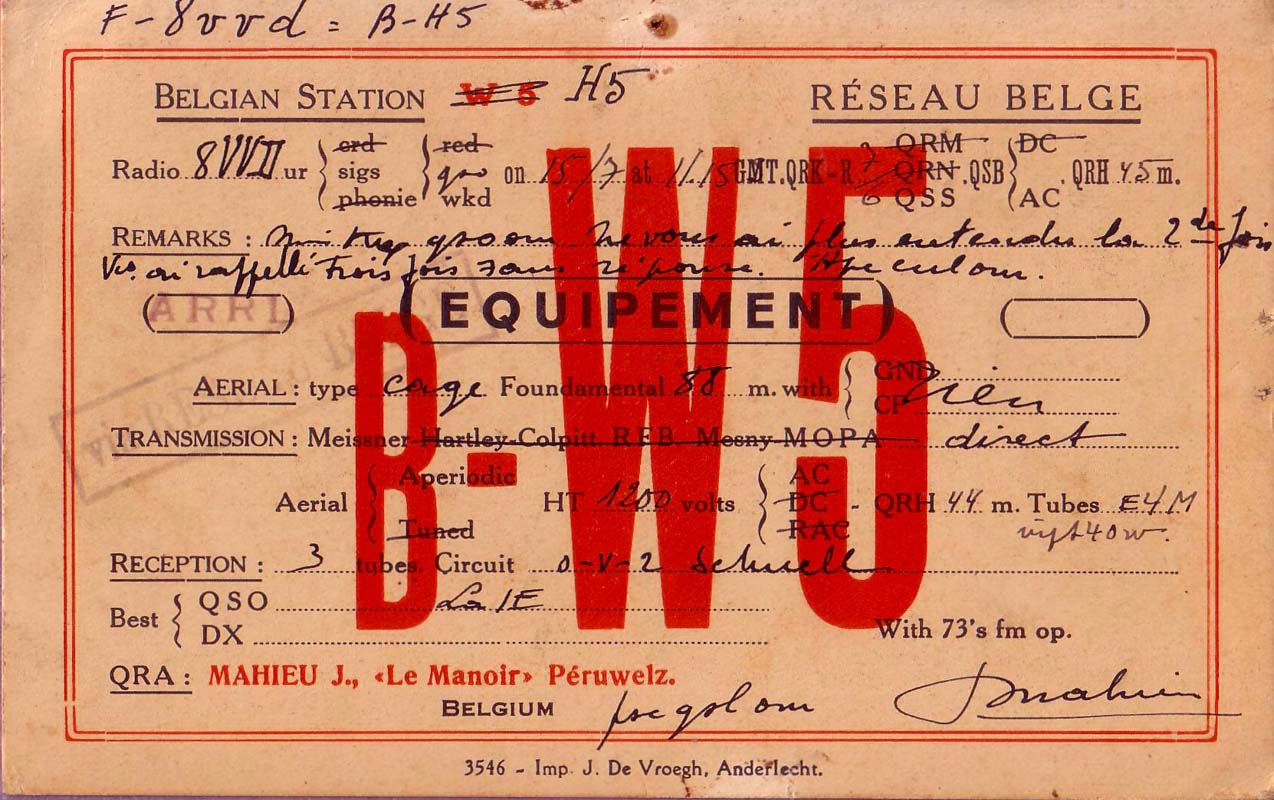 F-8vvd = B-H5
BELGIAN STATION W 5 H5 RÉSEAU BELGE
Radio 8VVD ur { crd sigs phonie { red qso wkd on 15/7 at 11.15 GMT. QRK-R 6 QRM QRN QSS . QSB { DC AC . QRH 45 m.
REMARKS : ne vous ai plus entendu la 2de fois
Vs. ai rappellé trois fois sans réponse.
ARRL (EQUIPEMENT)
B-W5
RESEAU BELGE
AERIAL : type cage Foundamental 88 m. with { GND CP
TRANSMISSION : Meissner-Hartley-Colpitt RFB Mesny-MOPA direct
Aerial { Aperiodic Tuned HT 1200 volts { AC DC RAC - QRH 44 m. Tubes E4M
40w.
RECEPTION : 3 tubes. Circuit 0-V-2 Schnell
Best { QSO La 1E
DX
With 73's fm op.
QRA : MAHIEU J., «Le Manoir» Péruwelz.
BELGIUM pse qsl om JMahieu
3546 - Imp. J. De Vroegh, Anderlecht.